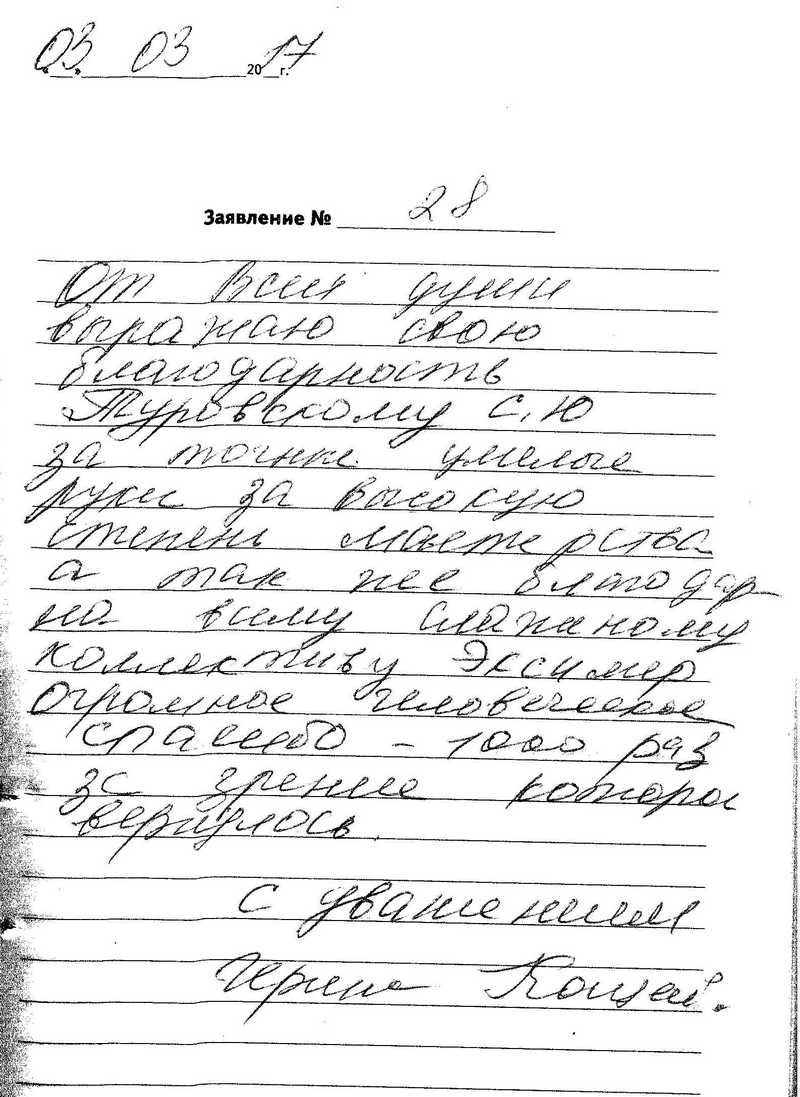 «03» 03 2017 г.
Заявление № 28
От всей души
выражаю свою
благодарность
Туровскому С.Ю
за точные умелые
руки за высокую
степень мастерства
а так же благодар
на всему слаженому
коллективу Эксимер
огромное человеческое
спасибо – 1000 раз
за зрение которое
вернулось.
с уважением
Кощей.